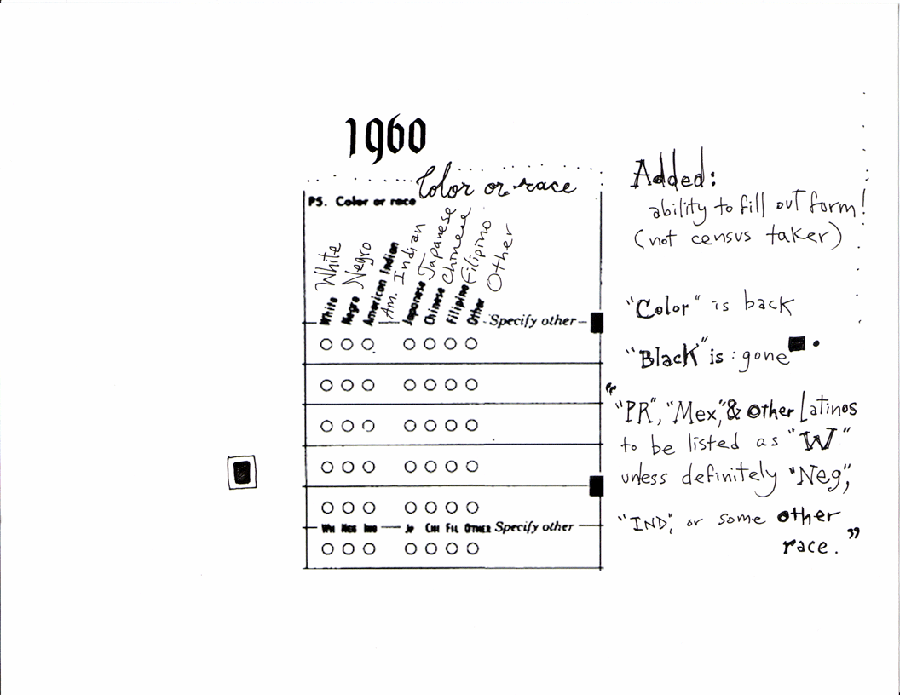 1960
Color or race
P5. Color or race
White
Negro
Am. Indian
Japanese
Chinese
Filipino
Other
White
Negro
American Indian
Japanese
Chinese
Filipino
Other
Specify other
WH NEG IND JP CHI FIL OTHER Specify other
Added:
ability to fill out form!
(not census taker)
"Color" is back
"Black" is: gone
"
"PR", "Mex," & other Latinos
to be listed as "W"
unless definitely "Neg",
"IND", or some other
race."